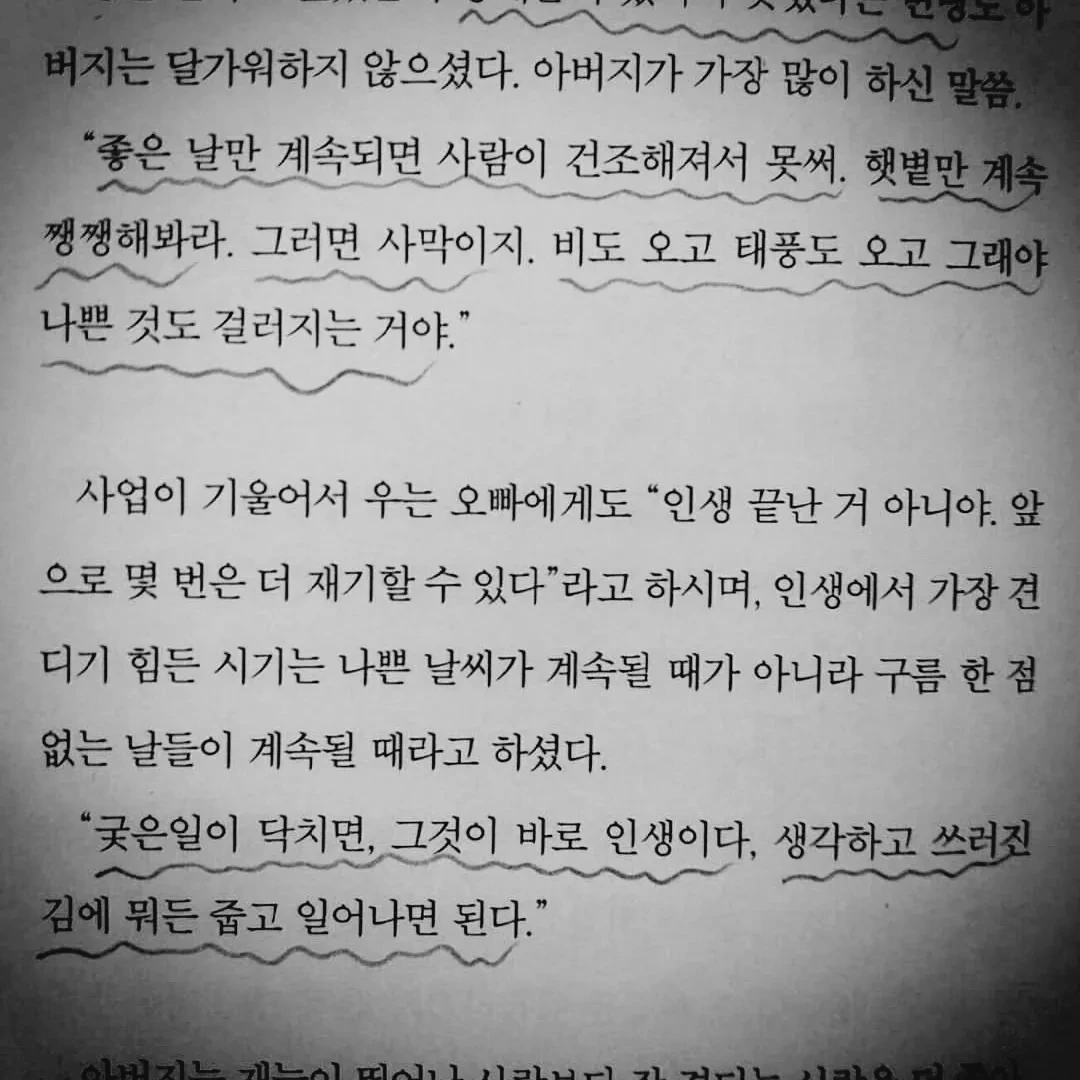 버지는 달가워하지 않으셨다. 아버지가 가장 많이 하신 말씀.
“좋은 날만 계속되면 사람이 건조해져서 못써. 햇볕만 계속
쨍쨍해봐라. 그러면 사막이지. 비도 오고 태풍도 오고 그래야
나쁜 것도 걸러지는 거야.”
사업이 기울어서 우는 오빠에게도 “인생 끝난 거 아니야. 앞
으로 몇 번은 더 재기할 수 있다”라고 하시며, 인생에서 가장 견
디기 힘든 시기는 나쁜 날씨가 계속될 때가 아니라 구름 한 점
없는 날들이 계속될 때라고 하셨다.
“궂은일이 닥치면, 그것이 바로 인생이다, 생각하고 쓰러진
김에 뭐든 줍고 일어나면 된다.”